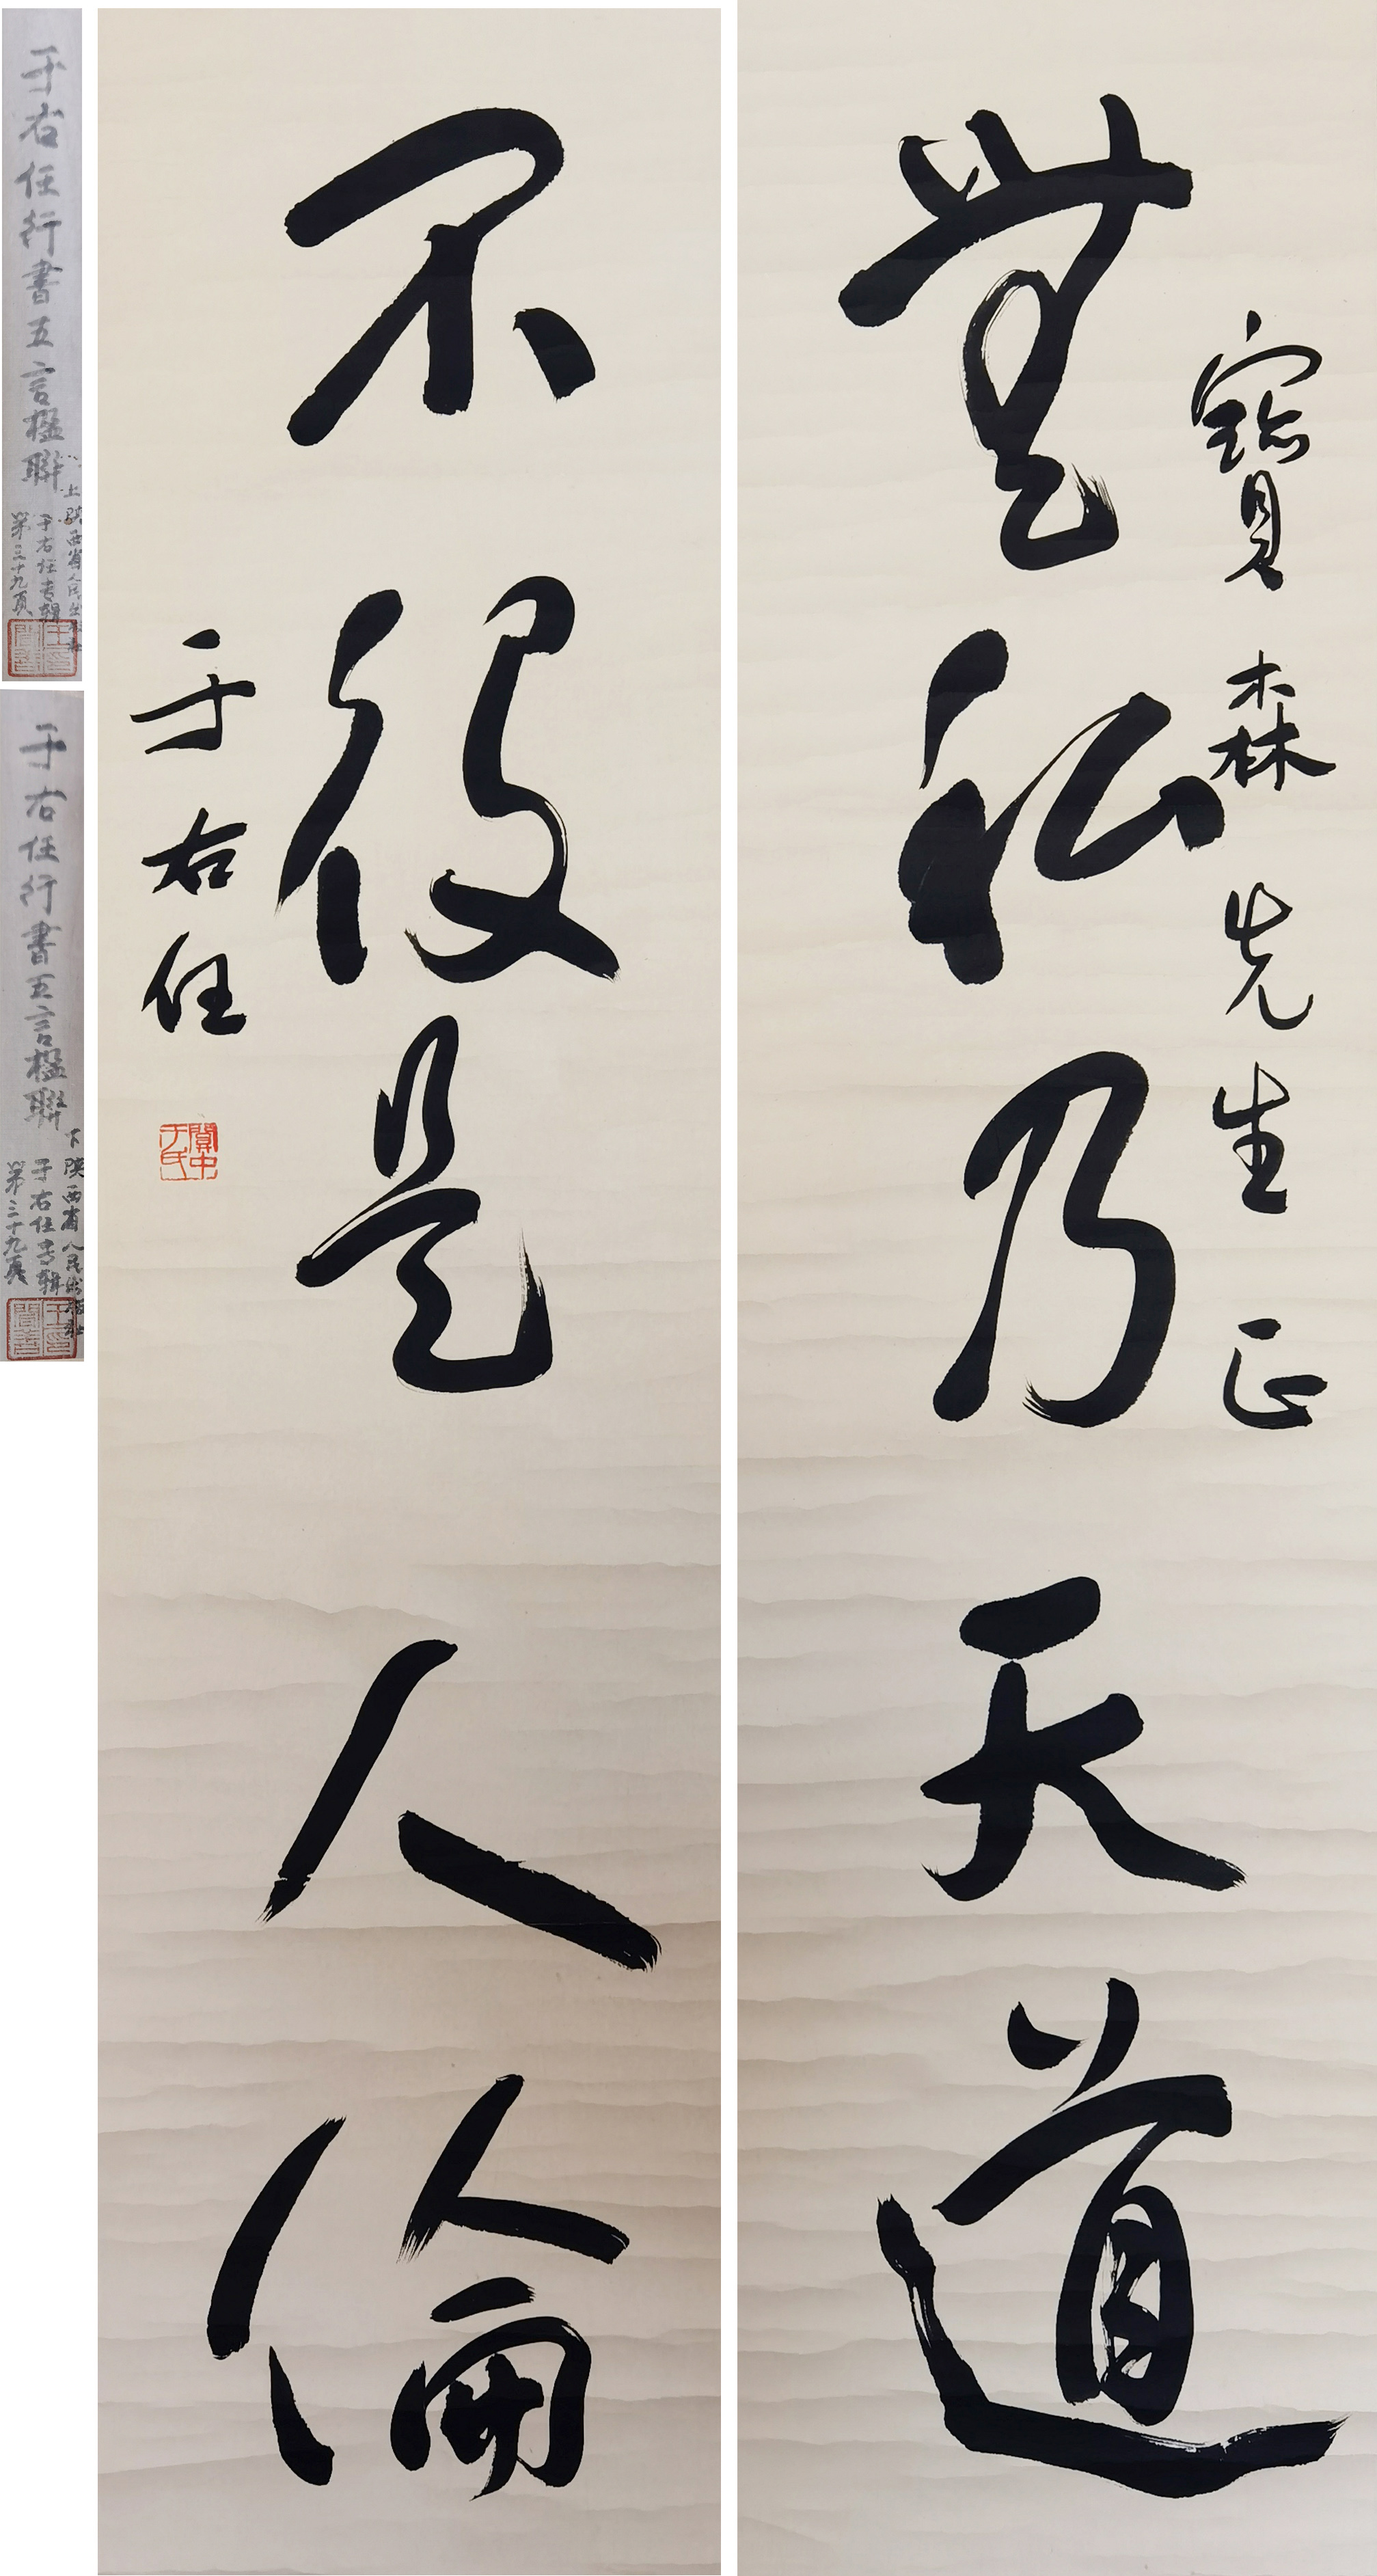 寶森先生正
無私乃天道
不役是人倫
于右任
關中于氏
于右任行書五言楹聯 上
陝西省人民出版社
于右任专輯
第三十九頁
于右任行書五言楹聯 下
陝西省人民出版社
于右任専輯
第三十九頁